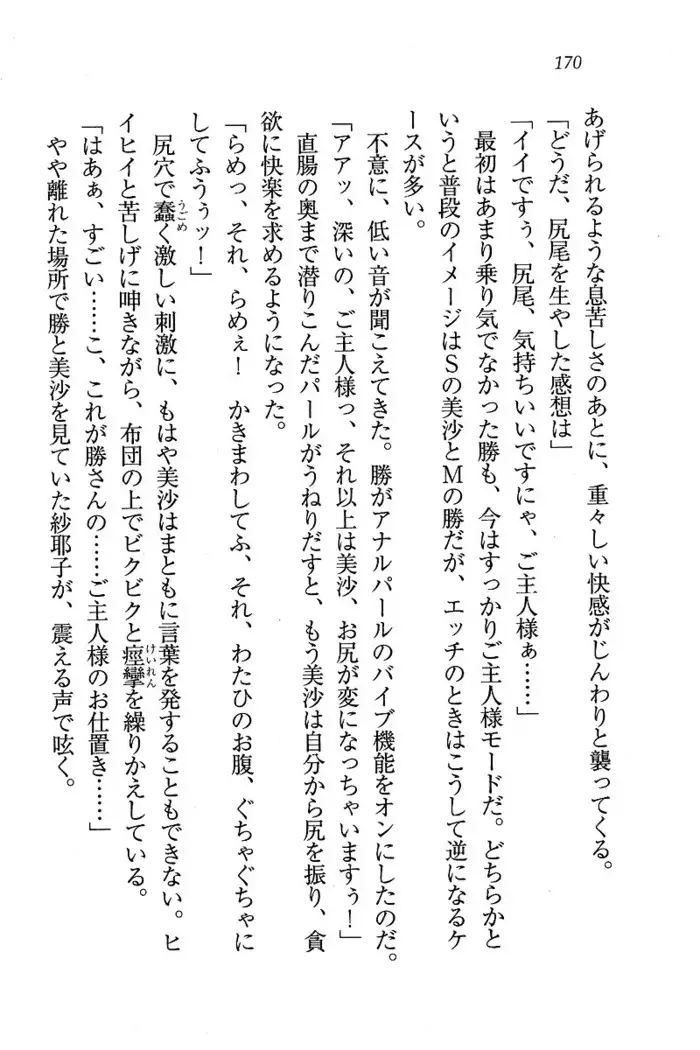 170
あげられるような息苦しさのあとに、重々しい快感がじんわりと襲ってくる。
「どうだ、尻尾を生やした感想は」
「イイですぅ、尻尾、気持ちいいですにゃ、ご主人様ぁ……」
最初はあまり乗り気でなかった勝も、今はすっかりご主人様モードだ。どちらかと
いうと普段のイメージはSの美沙とMの勝だが、エッチのときはこうして逆になるケ
ースが多い。
不意に、低い音が聞こえてきた。勝がアナルパールのバイブ機能をオンにしたのだ。
「アアッ、深いの、ご主人様っ、それ以上は美沙、お尻が変になっちゃいますぅ!」
直腸の奥まで潜りこんだパールがうねりだすと、もう美沙は自分から尻を振り、貪
欲に快楽を求めるようになった。
「らめっ、それ、らめぇ! かきまわしてふ、それ、わたひのお腹、ぐちゃぐちゃに
してふうぅッ!」
うごめ
尻穴で蠢く激しい刺激に、もはや美沙はまともに言葉を発することもできない。ヒ
けいれん
イヒイと苦しげに呻きながら、布団の上でビクビクと痙攣を繰りかえしている。
「はあぁ、すごい……こ、これが勝さんの……ご主人様のお仕置き……」
やや離れた場所で勝と美沙を見ていた紗耶子が、震える声で呟く。